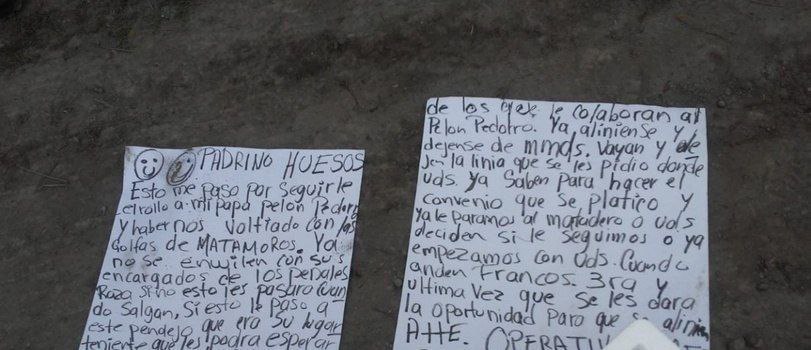 PADRINO HUESOS
Esto me paso por seguirle
el rollo a mi papa pelon
y habernos voltiado con las
Golfas de MATAMOROS. Ya
no se envilen con sus
encargados de los penales
Raza si no esto les pasara cuan
do salgan, si esto le paso a
este pendejo que era su lugar
teniente que les podra esperar
de los que le colaboran al
Pelon Pedofro. Ya aliniense y
dejense de mmds. Vayan y de
jen la linia que se les pidio donde
uds. ya saben para hacer el
convenio que se platico y
ya le paramos al matadero o uds
deciden si le seguimos o ya
empezamos con uds. Cuando
anden Francos. 3ra y
ultima vez que se les dara
la oportunidad para que se alinien
ATTE. OPERATIV